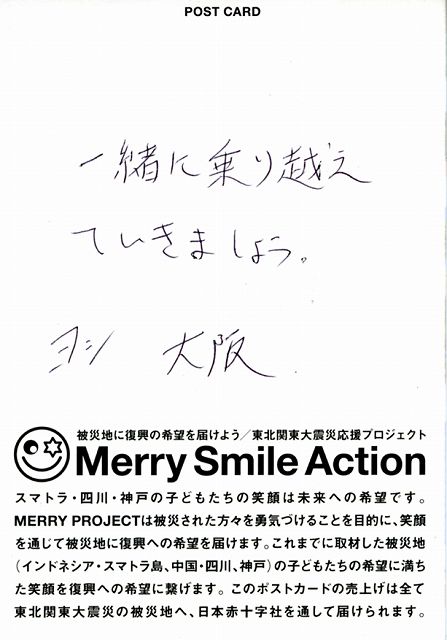 POST CARD
一緒に乗り越え
ていきましょう。
ヨシ 大阪
被災地に復興の希望を届けよう/東北関東大震災応援プロジェクト
Merry Smile Action
スマトラ・四川・神戸の子どもたちの笑顔は未来への希望です。
MERRY PROJECTは被災された方々を勇気づけることを目的に、笑顔
を通じて被災地に復興への希望を届けます。これまでに取材した被災地
(インドネシア・スマトラ島、中国・四川、神戸)の子どもたちの希望に満ち
た笑顔を復興への希望に繋げます。このポストカードの売上げは全て
東北関東大震災の被災地へ、日本赤十字社を通して届けられます。